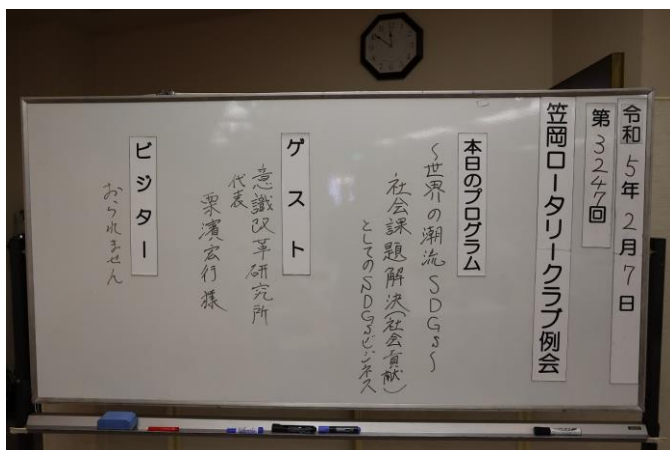 令和5年2月7日
第3247回
笠岡ロータリークラブ例会
本日のプログラム
～世界の潮流SDGs～
社会課題解決(社会貢献)
としてのSDGsビジネス
ゲスト
意識改革研究所
代表
栗濱宏行様
ビジター
おられません